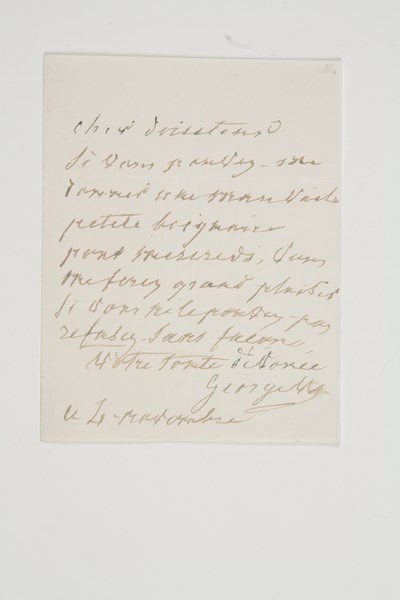 cher directeur
Si vous pouvez me
donner une mauvaise
petite baignoire
pour mercredi, vous
me ferez grand plaisir
Si vous ne le pouvez pas
refusez sans façon
Votre toute dévouée
George
le 4 novembre